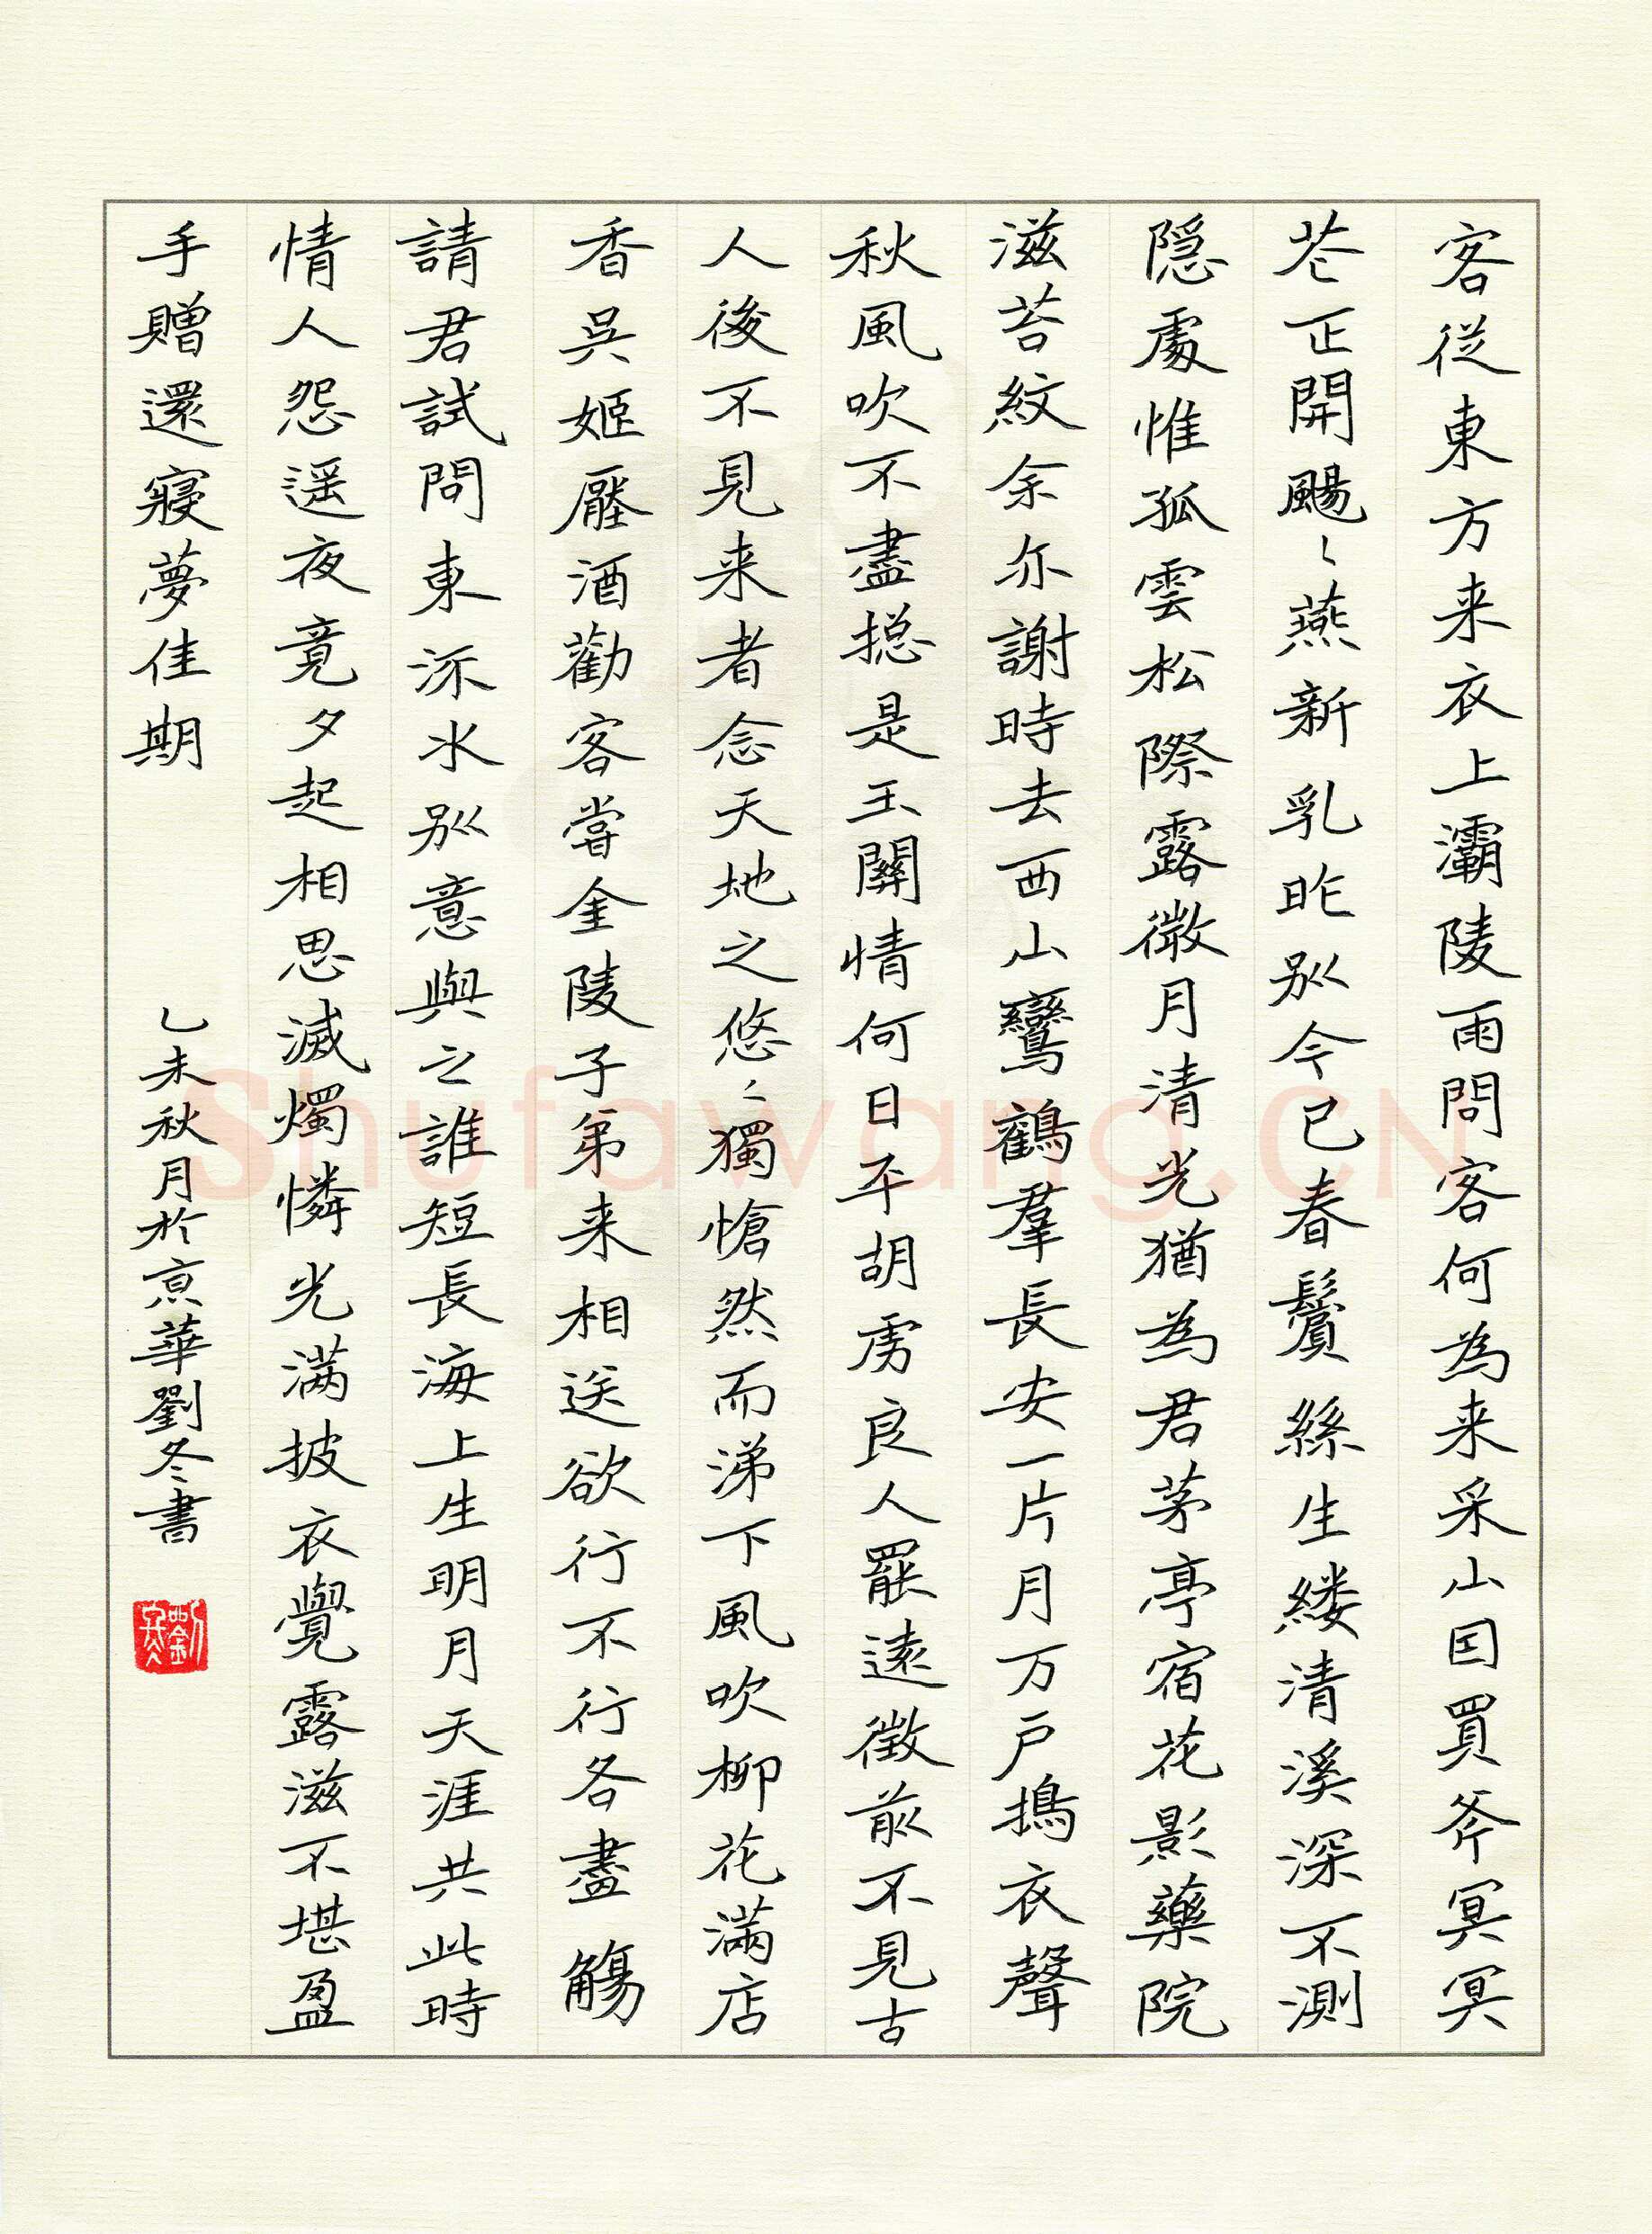 客從東方来衣上灞陵雨問客何為来采山因買斧冥冥
花正開颺〻燕新乳昨别今已春鬢絲生縷清溪深不測
隠處惟孤雲松際露微月清光猶為君茅亭宿花影藥院
滋苔紋余亦謝時去西山鸞鶴羣長安一片月万戶搗衣聲
秋風吹不盡揔是玉關情何日平胡虜良人罷遠徵前不見古
人後不見来者念天地之悠〻獨愴然而涕下風吹柳花滿店
香吳姬壓酒勸客嘗金陵子弟来相送欲行不行各盡觴
請君試問東流水别意與之誰短長海上生明月天涯共此時
情人怨遥夜竟夕起相思滅燭憐光滿披衣覺露滋不堪盈
手贈還寢夢佳期
乙未秋月於京華劉冬書
Shufawang.CN